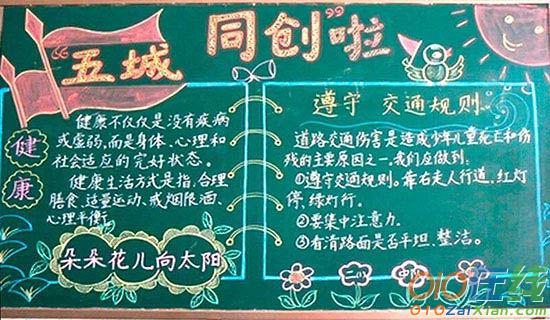 “五城 同创”啦
健康
健康不仅仅是没有疾病
或虚弱,而是身体、心理和
社会适应的完好状态。
健康生活方式是指,合理
膳食、适量运动、戒烟限酒、
心理平衡。
朵朵花儿向太阳
遵守 交通规则。
道路交通伤害是造成少年儿童死亡和伤
残的主要原因之一。我们应做到:
①遵守交通规则。靠右走人行道,红灯
停,绿灯行。
②要集中注意力.
③看清路面是否平坦、整洁。
三(1) 中队
010在线
010zaixian.com